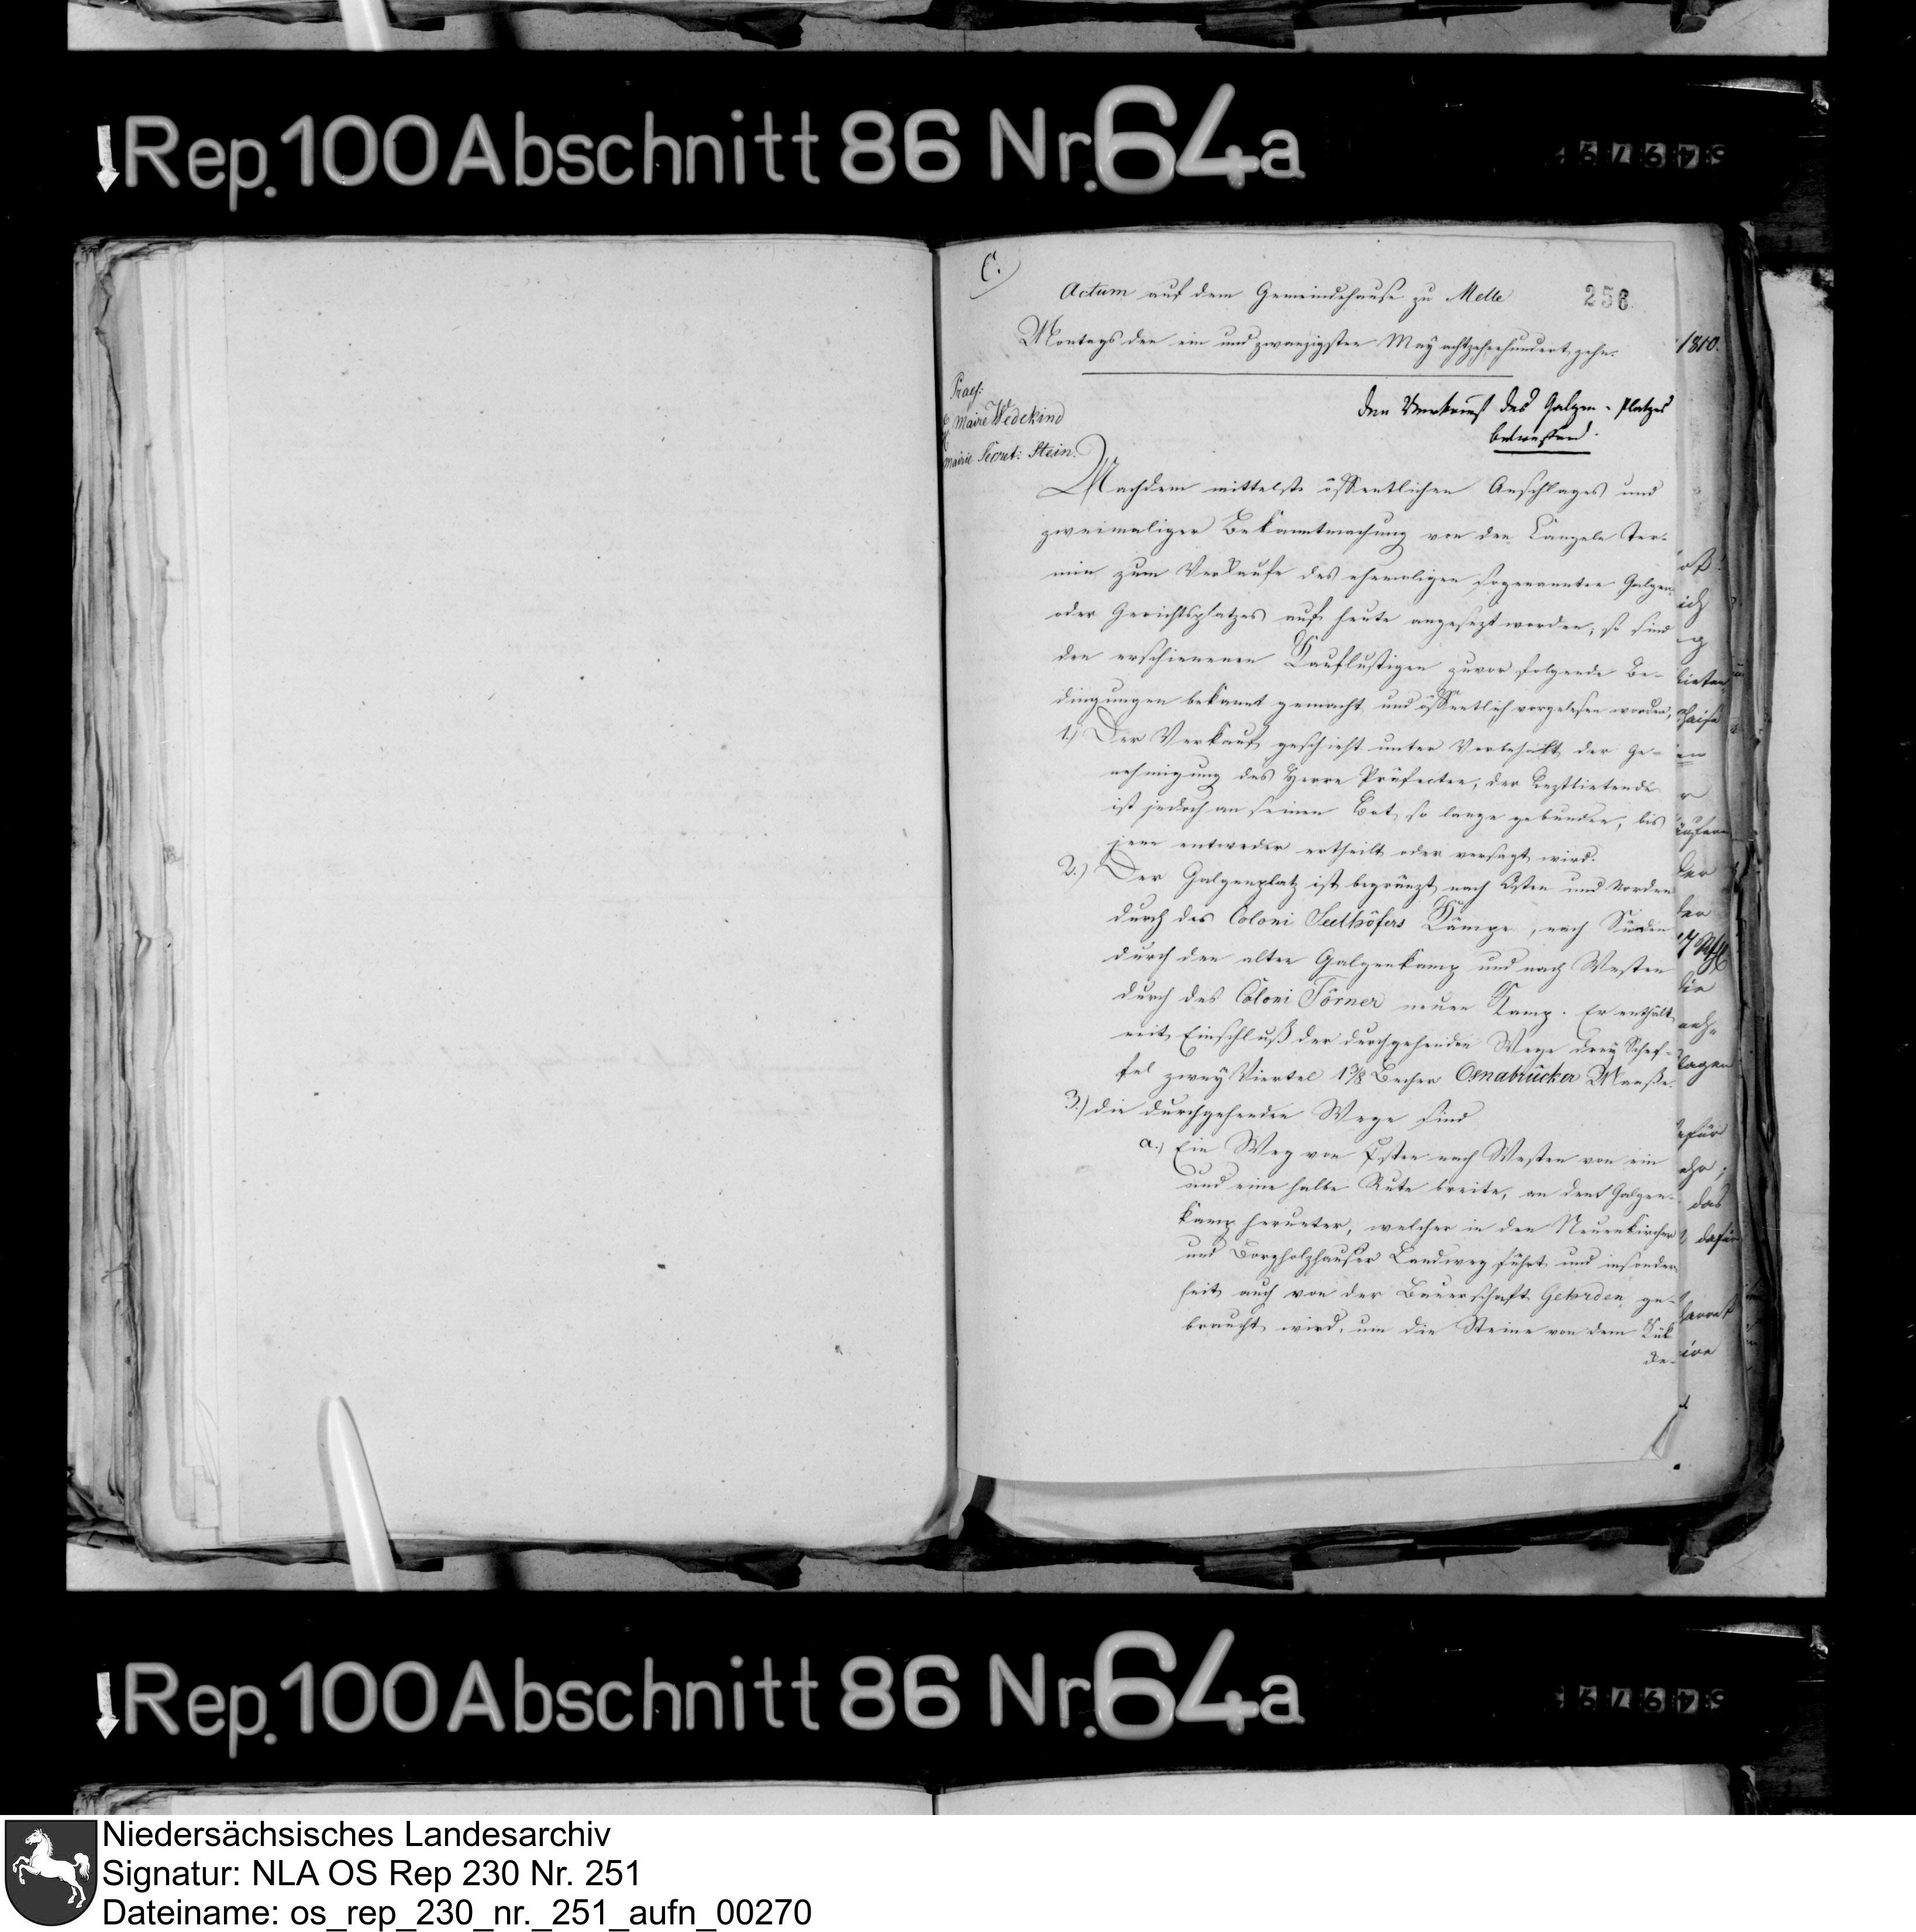 Rep. 100 Abschnitt 86 Nr. 64a
C.
Actum auf dem Gemeindehause zu Melle
256
Montags den ein und zwanzigsten May achtzehnhundert zehn.
1810.
Praes:
Maire Wedekind
Mairie Secret: Stein.
den Verkauf des Galgen-Platzes
betreffend.
Nachdem mittelst öffentlichen Anschlages und
zweimaliger Bekanntmachung von den Canzeln Ter-
min zum Verkaufe des ehemaligen sogenannten Galgen
oder Gerichtsplatzes auf heute angesezt worden; so sind
den erschienenen Kauflustigen zuvor folgende Be-
dingungen bekannt gemacht und öffentlich vorgelesen worden,
1.) Der Verkauf geschieht unter Vorbehalt der Ge-
nehmigung des Herrn Präfecten, der Leztbietende
ist jedoch an seinen Bot so lange gebunden, bis
jene entweder ertheilt oder versagt wird.
2.) Der Galgenplatz ist begränzt nach Osten und Norden
durch des Coloni Seelhöfers Kämpe, nach Süden
durch den alten Galgenkamp und nach Westen
durch des Coloni Törner neuen Kamp. Er enthält
mit Einschluß der durchgehenden Wege drey Schef-
fel zwey Viertel 1 3/8 Becher Osnabrücker Maaße.
3.) die durchgehenden Wege sind
a.) Ein Weg von Osten nach Westen von ein
und eine halbe Rute breite, an dem Galgen-
kamp herunter, welcher in den Neuenkircher
und Borgholzhauser Landweg führt und insonder
heit auch von der Bauerschaft Gehrden ge-
braucht wird, um die Steine von dem
Rep. 100 Abschnitt 86 Nr. 64a
Niedersächsisches Landesarchiv
Signatur: NLA OS Rep 230 Nr. 251
Dateiname: os_rep_230_nr._251_aufn_00270